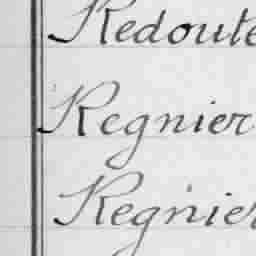 Redoute
Regnier
Regnier